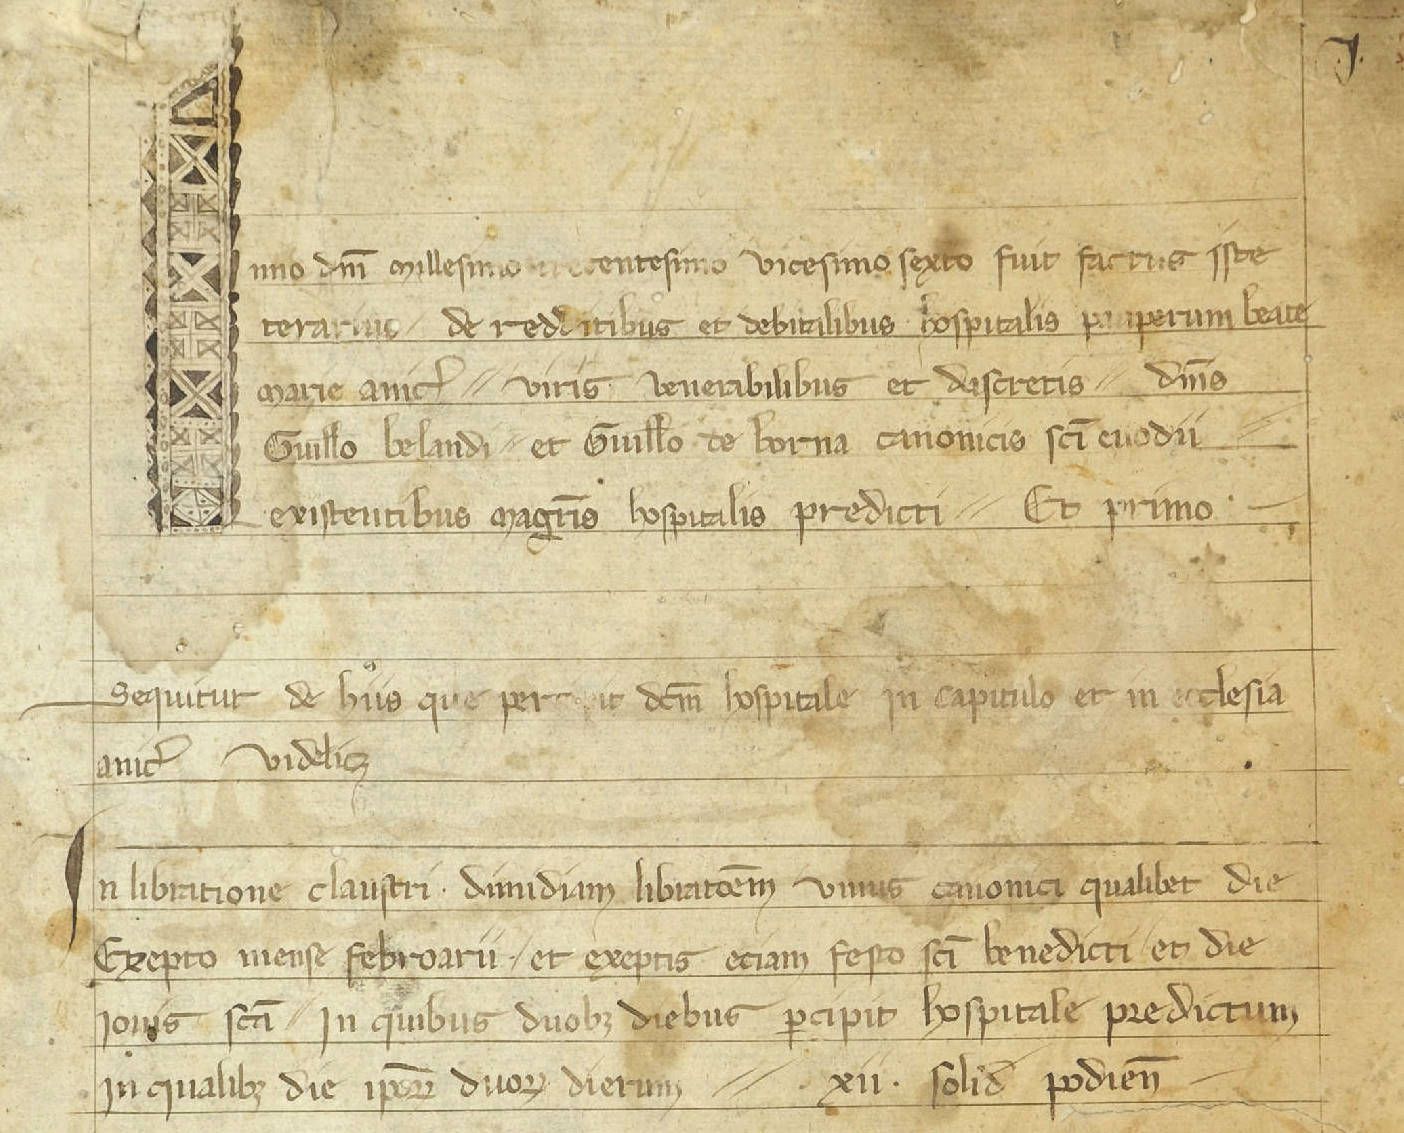 J.
nno dnī millesimo trecentesimo vicesimo sexto fuit factus iste
terarius / de redditibus et debitalibus hospitalis pauperum beate
marie anic̄ // viris venerabilibus et discretis // dnīs
Guillo belandi // et Guillo de borna canonicis scī euodii //
existentibus magrīs hospitalis predicti // Et primo
Sequitur de hiis que percipit dcm̄ hospitale in capitulo et in ecclesia
anic̄ videlicꝫ
In libratione claustri . dimidiam libratōem unius canonici qualibet die
Exepto mense febroarii / et exeptis eciam festo scī benedicti / et die
iouis scā // In quibus duobꝫ diebus ꝑcipit hospitale predictum
in qualibꝫ die ipōꝝ duoꝝ dierum // . xii . solid̄ podien̄